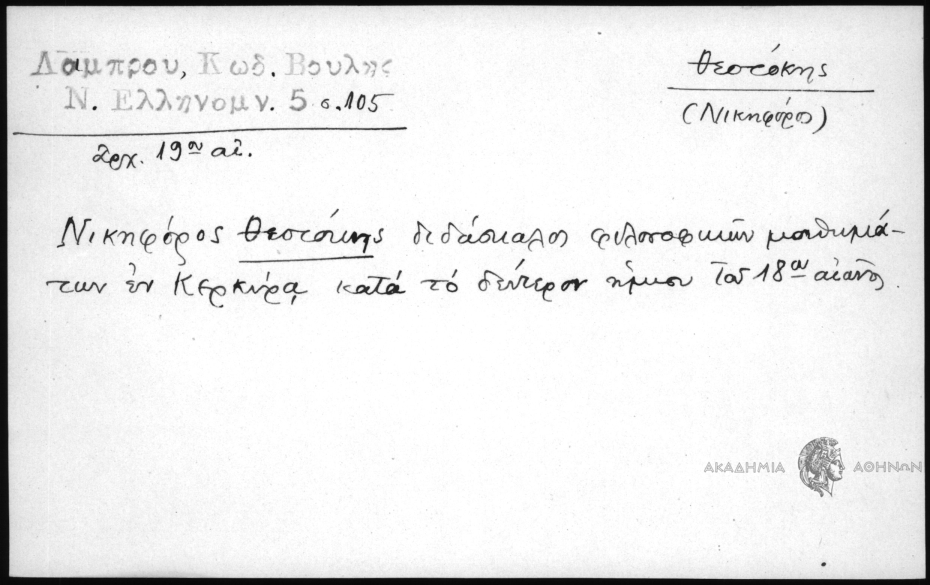 Λάμπρου, Κωδ. Βουλῆς
Ν. Ἑλληνομν. 5 σ. 105
ἀρχ. 19ου αἰ.
Θεοτόκης
(Νικηφόρος)
Νικηφόρος Θεοτόκης διδάσκαλος φιλοσοφικῶν μαθημά-
των ἐν Κερκύρᾳ κατά τό δεύτερον ἥμισυ τοῦ 18ου αἰῶνος.
ΑΚΑΔΗΜΙΑ ΑΘΗΝΩΝ